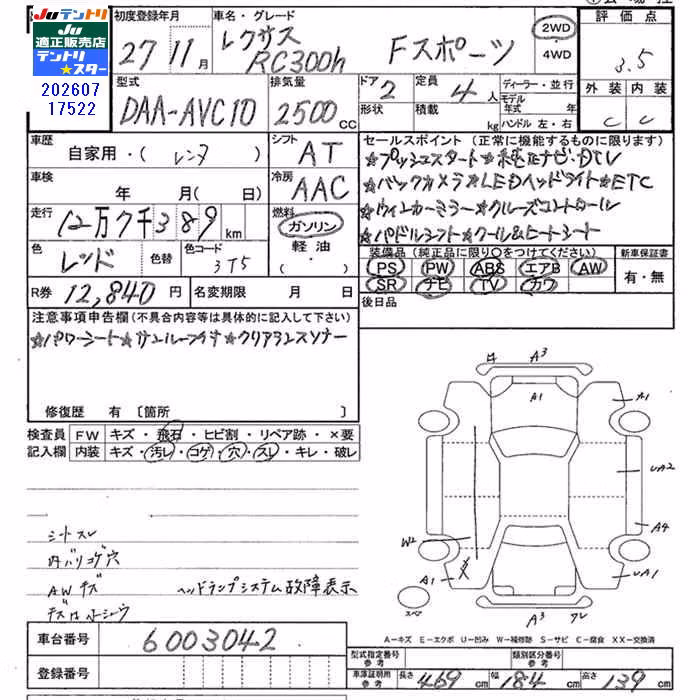 Juテントリ
Ju
適正販売店
テントリ
★スター
202607
17522
初度登録年月
27 11月
車名・グレード
レクサス
RC300h Fスポーツ
2WD
4WD
評価点
3.5
外装 内装
C C
型式
DAA-AVC10
排気量
2500 CC
ドア 2
形状
定員 4人
積載 kg
ディーラー・並行
モデル年式 年
ハンドル 左・右
車歴
自家用・( レンタ )
シフト AT
車検
年 月(日)
冷房 AAC
走行
12万7千389km
燃料
ガソリン
軽油
( ・ )
色 レッド 色替
色コード 3T5
R券 12,840円 名変期限 月 日
セールスポイント(正常に機能するものに限ります)
★プッシュスタート★純正ナビ・DTV
★バックカメラ★LEDヘッドライト★ETC
★ウィンカーミラー★クルーズコントロール
★パドルシフト★クール&ヒートシート
装備品(純正品に限り○をつけてください)
PS PW ABS エアB AW
SR ナビ TV カワ
新車保証書
有・無
後日品
注意事項申告欄(不具合内容等は具体的に記入して下さい)
★パワーシート★サンルーフ★クリアランスソナー
修復歴 有 〔箇所 〕
検査員 FW キズ・飛石・ヒビ割・リペア跡・×要
記入欄 内装 キズ・汚レ・コゲ・穴・スレ・キレ・破レ
シートスレ
内バリコゲ穴
AWキズ ヘッドランプシステム故障表示
A3
A1
A1
UA2
A4
W2
A1
UA1
スペア
A3
A-キズ E-エクボ U-凹み W-補修跡 S-サビ C-腐食 XX-交換済
車台番号 6003042
登録番号
型式指定番号 参考
類別区分番号 参考
車庫証明用 参考 長さ 469cm 幅 184cm 高さ 139cm